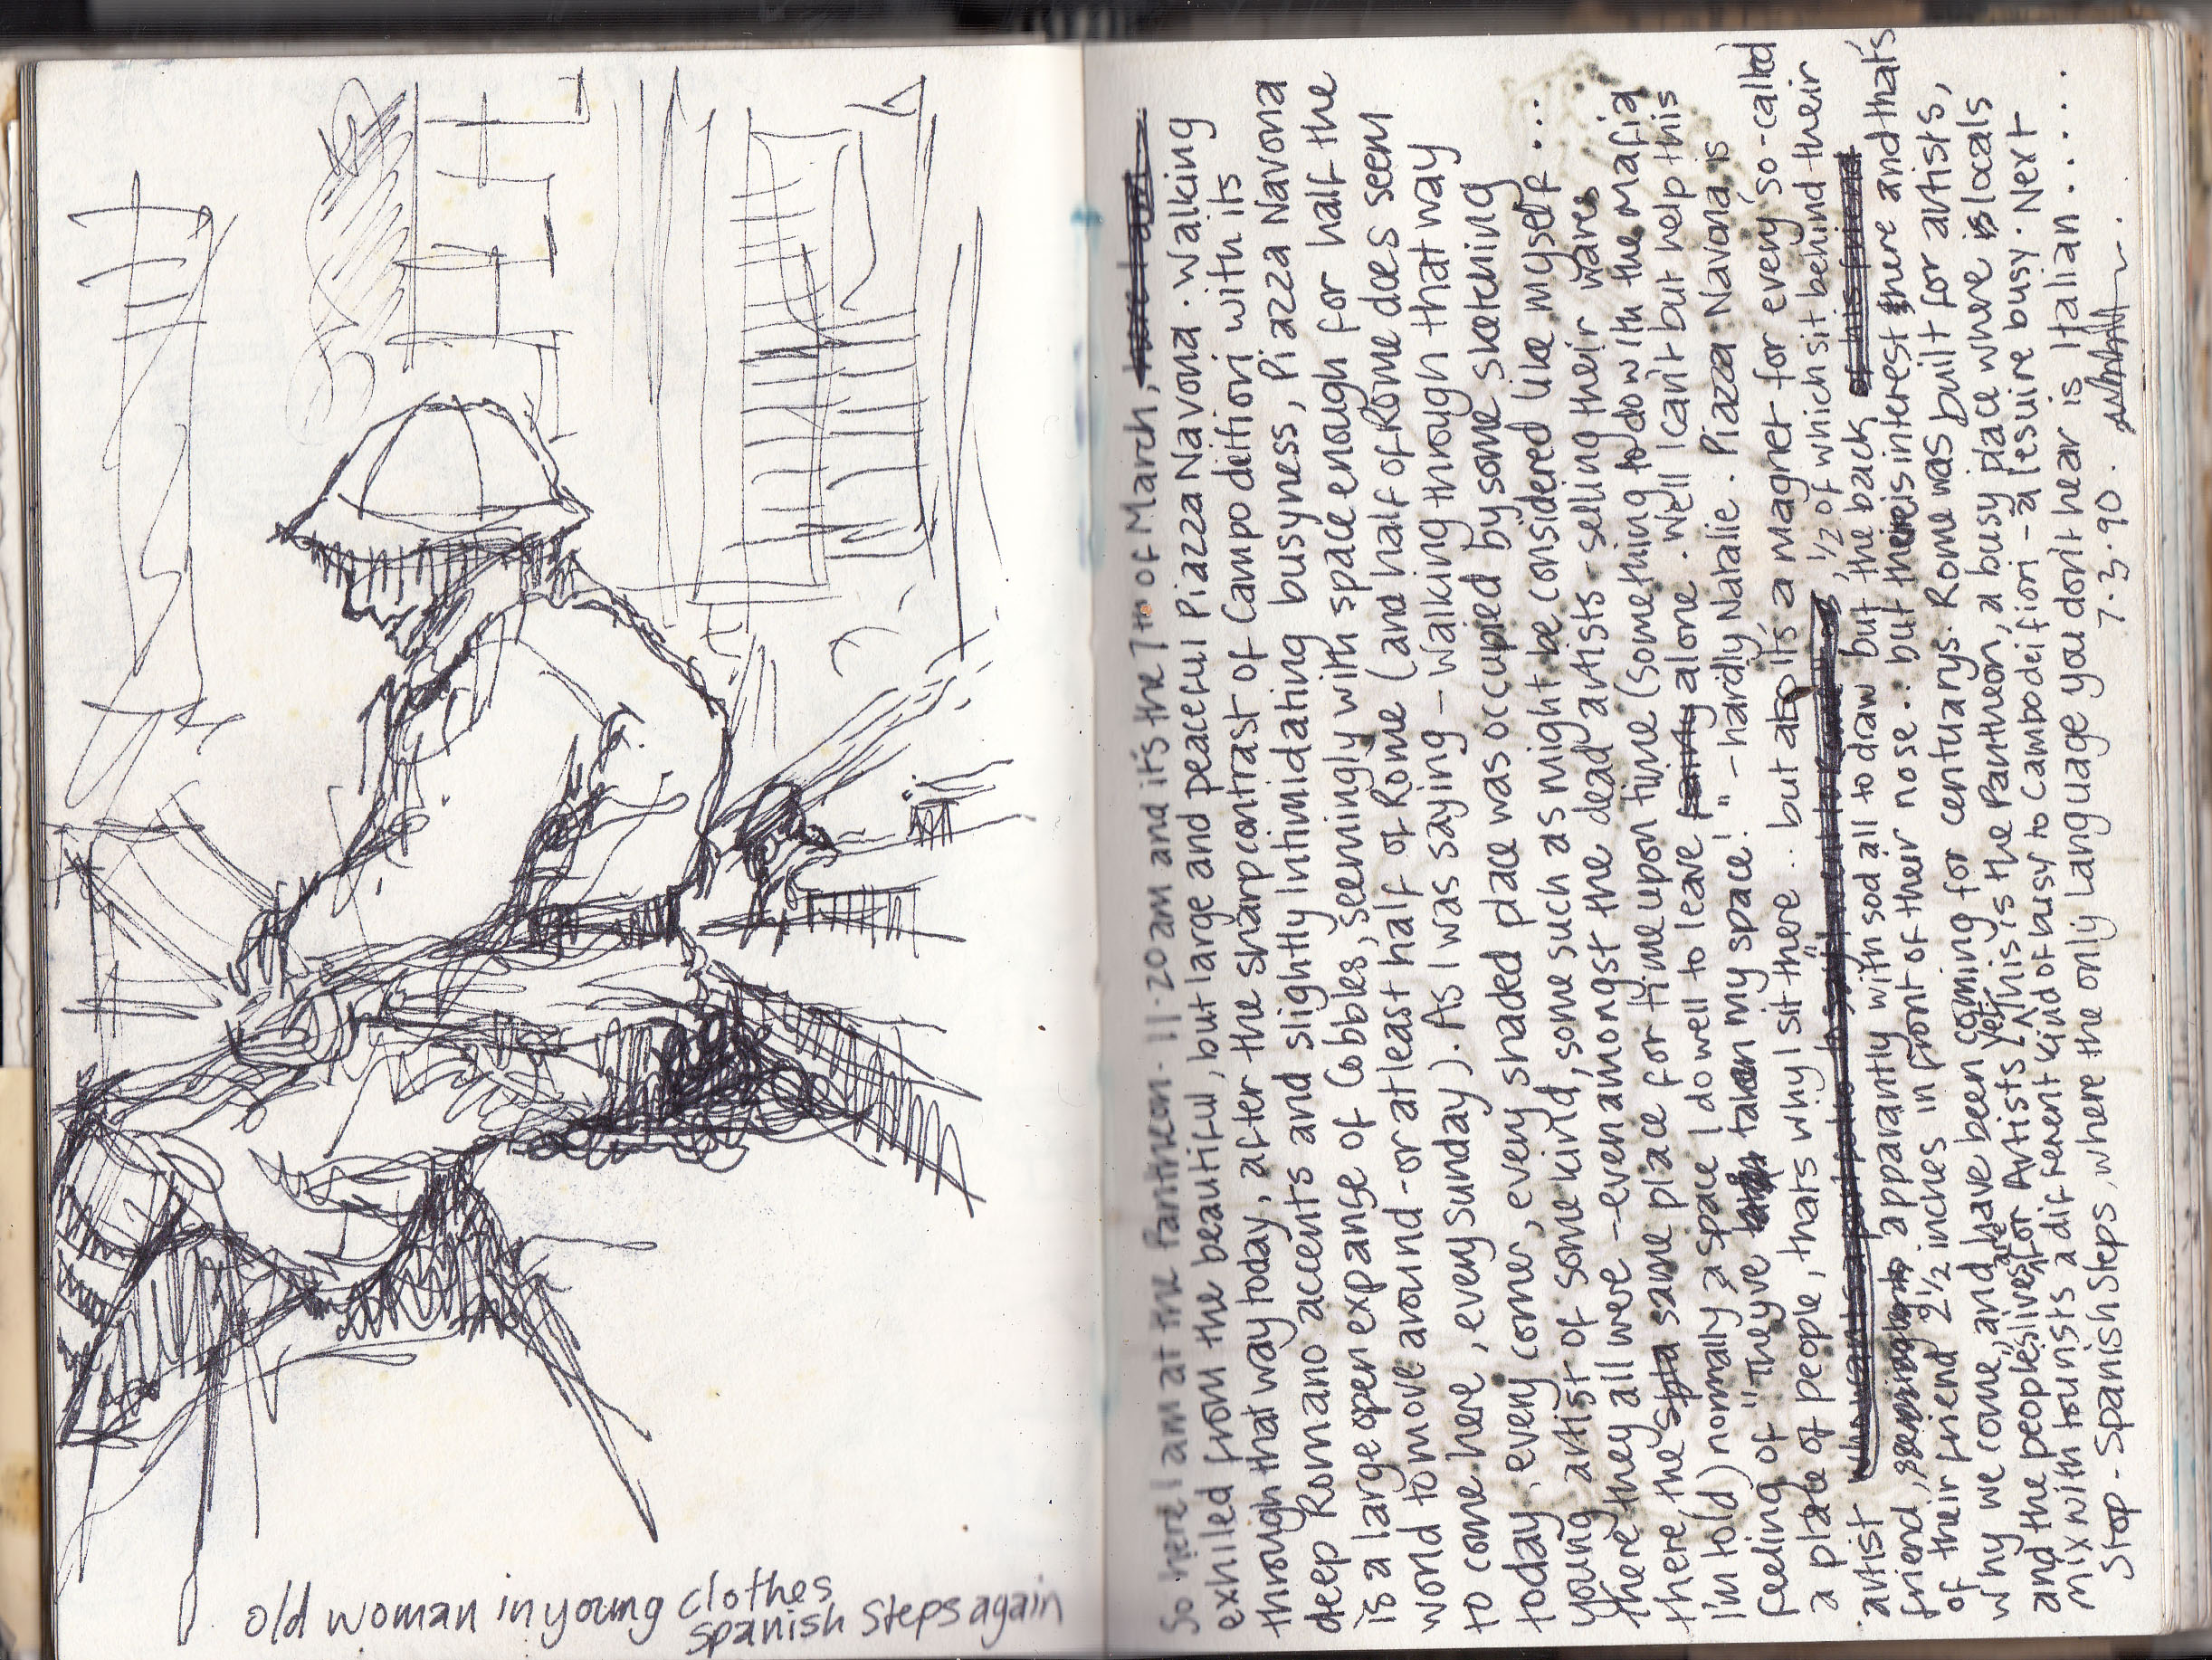 old woman in young clothes
spanish steps again
So here I am at the Pantheon. 11.20am and it's the 7th of March,
exhiled from the beautiful, but large and peaceful Piazza Navona. Walking
through that way today, after the sharp contrast of Campo deifiori with its
deep Romano accents and slightly intimidating busyness, Piazza Navona
is a large open expanse of Cobbles, seemingly with space enough for half the
world to move around - or at least half of Rome (and half of Rome does seem
to come here, every sunday). As I was saying - walking through that way
today, every corner, every shaded place was occupied by some sketching
young artist of some kind, some such as might be considered like myself ...
there they all were - even amongst the dead artists - selling their wares
there, the same place for time upon time (something to do with the Mafia
I'm told) normally a space I do well to leave alone. Well I can't but help this
feeling of "They've taken my space!" - hardly Natalie. Piazza Navona, is
a place of people, thats why I sit there .. but also it's a magnet for every 'so-called
artist' , 1/2 of which sit behind their
friend, apparantly with sod all to draw but the back
of their friend 2 1/2 inches in front of their nose.. but theres interest there and that's
why we come, and have been coming for centurys. Rome was built for artists,
and the people's lives are for Artists, yet this is the Pantheon, a busy place where locals
mix with tourists a different kind of busy to Campo deifiori - a lesuire busy. Next
Stop - Spanish Steps, where the only language you don't hear is Italian .....
7.3.90.